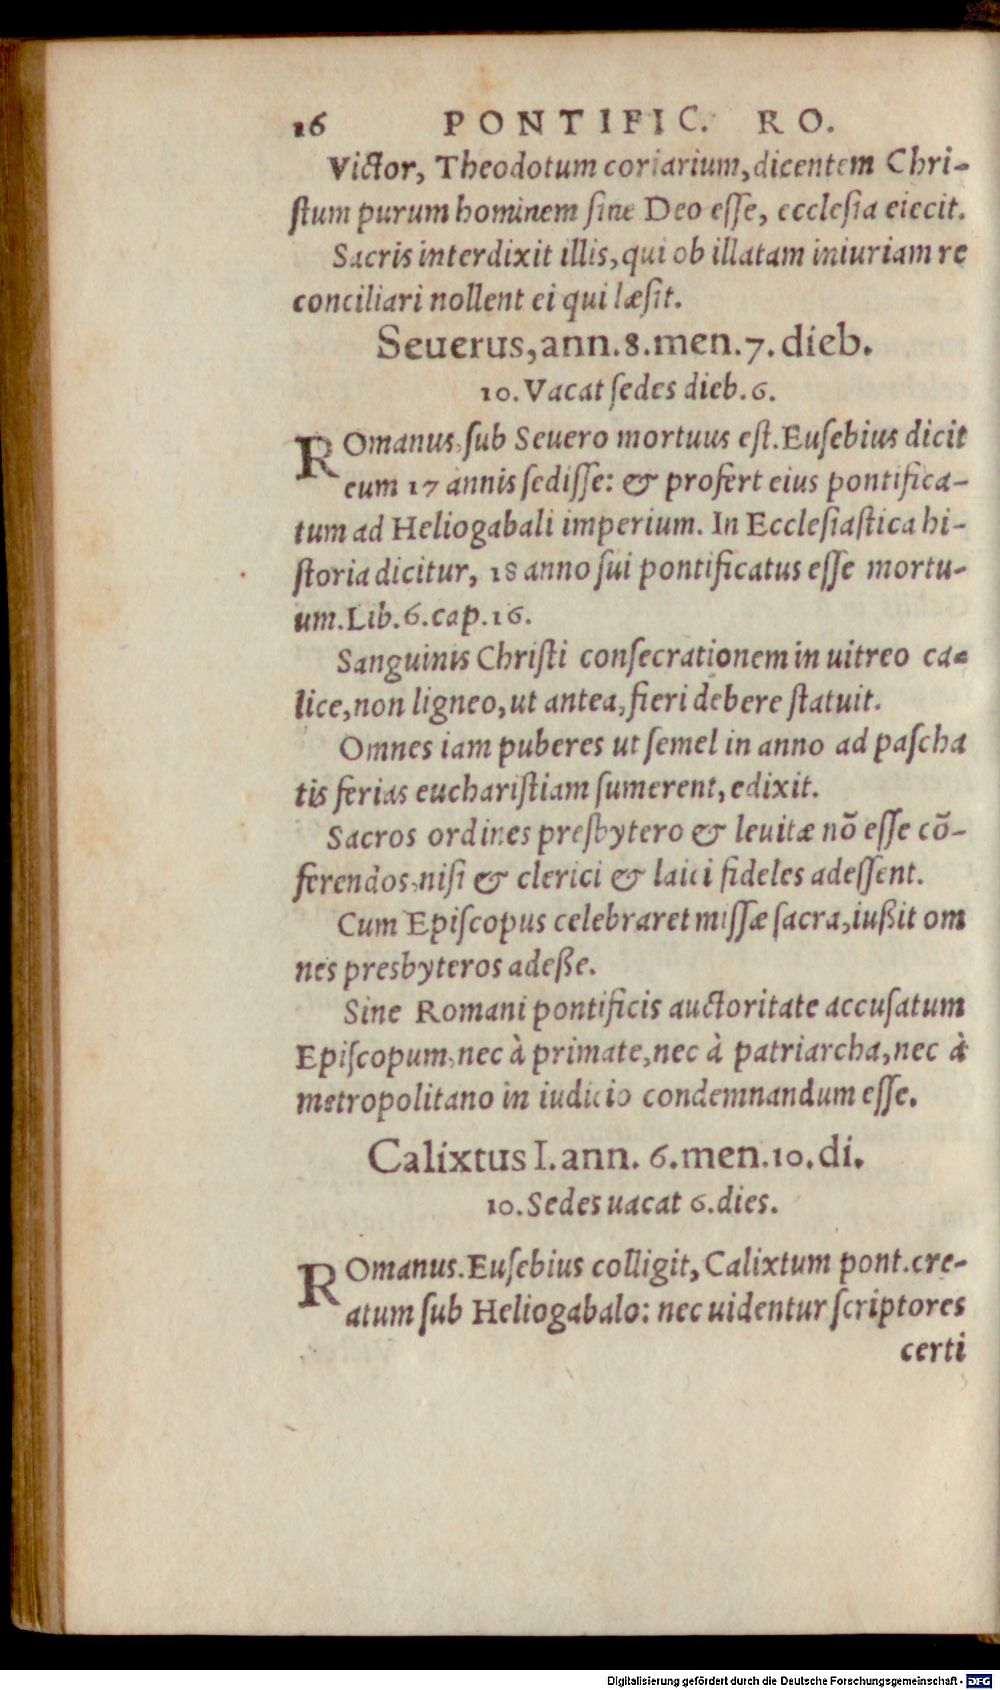 16 PONTIFIC. RO.
Victor, Theodotum coriarium, dicentem Chri-
ſtum purum hominem ſine Deo eſſe, eccleſia eiecit.
Sacris interdixit illis, qui ob illatam iniuriam re
conciliari nollent ei qui læſit.
Seuerus, ann. 8. men. 7. dieb.
10. Vacat ſedes dieb. 6.
ROmanus, ſub Seuero mortuus eſt. Euſebius dicit
eum 17 annis ſediſſe: & profert eius pontifica-
tum ad Heliogabali imperium. In Eccleſiaſtica hi-
ſtoria dicitur, 18 anno ſui pontificatus eſſe mortu-
um. Lib. 6. cap. 16.
Sanguinis Chriſti conſecrationem in uitreo ca-
lice, non ligneo, ut antea, fieri debere ſtatuit.
Omnes iam puberes ut ſemel in anno ad paſcha
tis ferias euchariſtiam ſumerent, edixit.
Sacros ordines preſbytero & leuitæ nõ eſſe cõ-
ferendos, niſi & clerici & laici fideles adeſſent.
Cum Epiſcopus celebraret miſſæ ſacra, iußit om
nes presbyteros adeße.
Sine Romani pontificis auctoritate accuſatum
Epiſcopum, nec à primate, nec à patriarcha, nec à
metropolitano in iudicio condemnandum eſſe.
Calixtus I. ann. 6. men. 10. di.
10. Sedes uacat 6. dies.
ROmanus. Euſebius colligit, Calixtum pont. cre-
atum ſub Heliogabalo: nec uidentur ſcriptores
certi
Digitalisierung gefördert durch die Deutsche Forschungsgemeinschaft - DFG